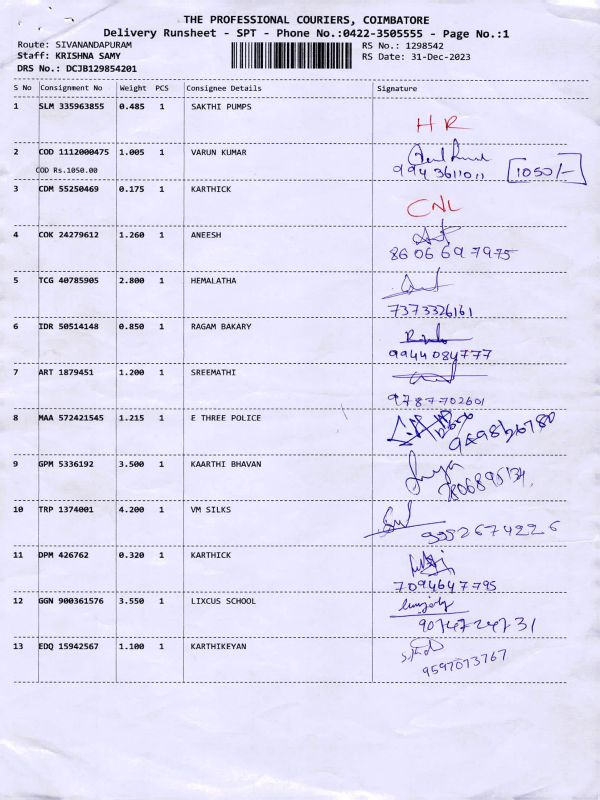 THE PROFESSIONAL COURIERS, COIMBATORE
Delivery Runsheet - SPT - Phone No.:0422-3505555 - Page No.:1
Route: SIVANANDAPURAM RS No.: 1298542
Staff: KRISHNA SAMY RS Date: 31-Dec-2023
DRS No.: DCJB129854201
S No Consignment No Weight PCS Consignee Details Signature
1 SLM 335963855 0.485 1 SAKTHI PUMPS
HR
2 COD 1112000475 1.005 1 VARUN KUMAR
COD Rs.1050.00 9943611011 1050/-
3 CDM 55250469 0.175 1 KARTHICK
CNL
4 COK 24279612 1.260 1 ANEESH
8606697975
5 TCG 40785905 2.800 1 HEMALATHA
7373326161
6 IDR 50514148 0.850 1 RAGAM BAKARY
9944084777
7 ART 1879451 1.200 1 SREEMATHI
9787702601
8 MAA 572421545 1.215 1 E THREE POLICE
9 GPM 5336192 3.500 1 KAARTHI BHAVAN
10 TRP 1374001 4.200 1 VM SILKS
9952674226
11 DPM 426762 0.320 1 KARTHICK
7094647795
12 GGN 900361576 3.550 1 LIXCUS SCHOOL
9074724731
13 EDQ 15942567 1.100 1 KARTHIKEYAN
9597073767